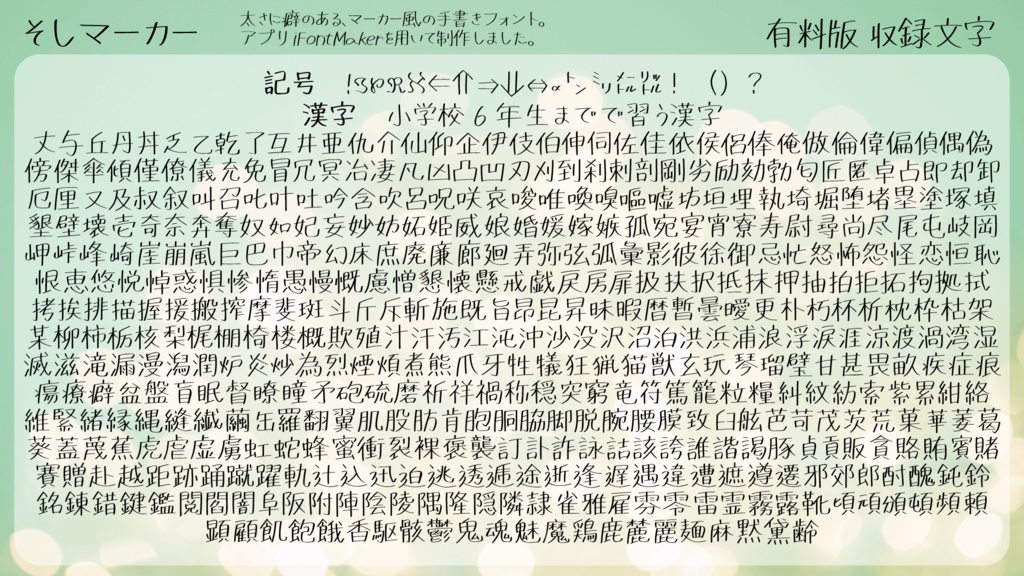 そしマーカー
太さに癖のある、マーカー風の手書きフォント。
アプリ iFontMakerを用いて制作しました。
有料版 収録文字
記号 ⇐⇑⇒⇓⇔ ! () ?
漢字 小学校6年生までで習う漢字
丈与丘丹丼乏乙乾了互井亜仇介仙仰企伊伎伯伸伺佐佳依侯侶俸俺倣倫偉偏偵偶偽
傍傑傘傾僅僚儀充免冒冗冥冶凄凡凶凸凹刃刈到刹刺剖剛劣励劾勃匂匠匿卓占即却卸
厄厘又及叔叙叫召叱叶吐吟含吹呂呪咲哀唆唯喚嗅嘔嘘坊垣埋執埼堀堕堵塁塗塚填
墾壁壊壱奇奈奔奪奴如妃妄妙妨妬姫威娘婚媛嫁嫉孤宛宴宵寮寿尉尋尚尽尾屯岐岡
岬峠峰崎崖崩嵐巨巴巾帝幻床庶廃廉廊廻弄弥弦弧彙影彼徐御忌忙怒怖怨怪恋恒恥
恨恵悠悦悼惑惧惨惰愚慢慨慮憎懇懐懸戒戯戻房扉扱扶択抵抹押抽拍拒拓拘拠拭
拷挨排描握援搬搾摩斐斑斗斤斥斬施既旨昂昆昇昧暇暦暫曇曖更朴朽杯析枕枠枯架
某柳柿栃核梨梶棚椅楼概欺殖汁汗汚江沌沖沙没沢沼泊洪浜浦浪浮涙涯涼渡渦湾湿
滅滋滝漏漫潟潤炉炎炒為烈煙煩煮熊爪牙牲犠狂猟猫獣玄玩琴瑠璧甘甚畏畝疾症痕
瘍療癖盆盤盲眠督瞭瞳矛砲硫磨祈祥禍称穏突窮竜符篤籠粒糧糾紋紡索紫累紺絡
維緊緒縁縄縫繊繭缶羅翻翼肌股肪肯胞胴脇脚脱腕腰膜致臼舷芭苛茂茨荒菓華萎葛
葵蓋蔑蕉虎虐虚虜虹蛇蜂蜜衝裂裸褒襲訂訃詐詠詰該誇誰諧謁豚貞貢販貪賂賄賓賭
賽贈赴越距跡踊蹴躍軌辻込迅迫逃透逓途逝逢遅遇違遭遮遵遷邪郊郎酎醜鈍鈴
銘錬錯鍵鑑閲閻闇阜阪附陣陰陵隅隆隠隣隷雀雅雇雰零雷霊霧露靴頃頑頒頓頻頼
顕顧飢飽餓香駆骸鬱鬼魂魅魔鶏鹿麓麗麺麻黙黛齢